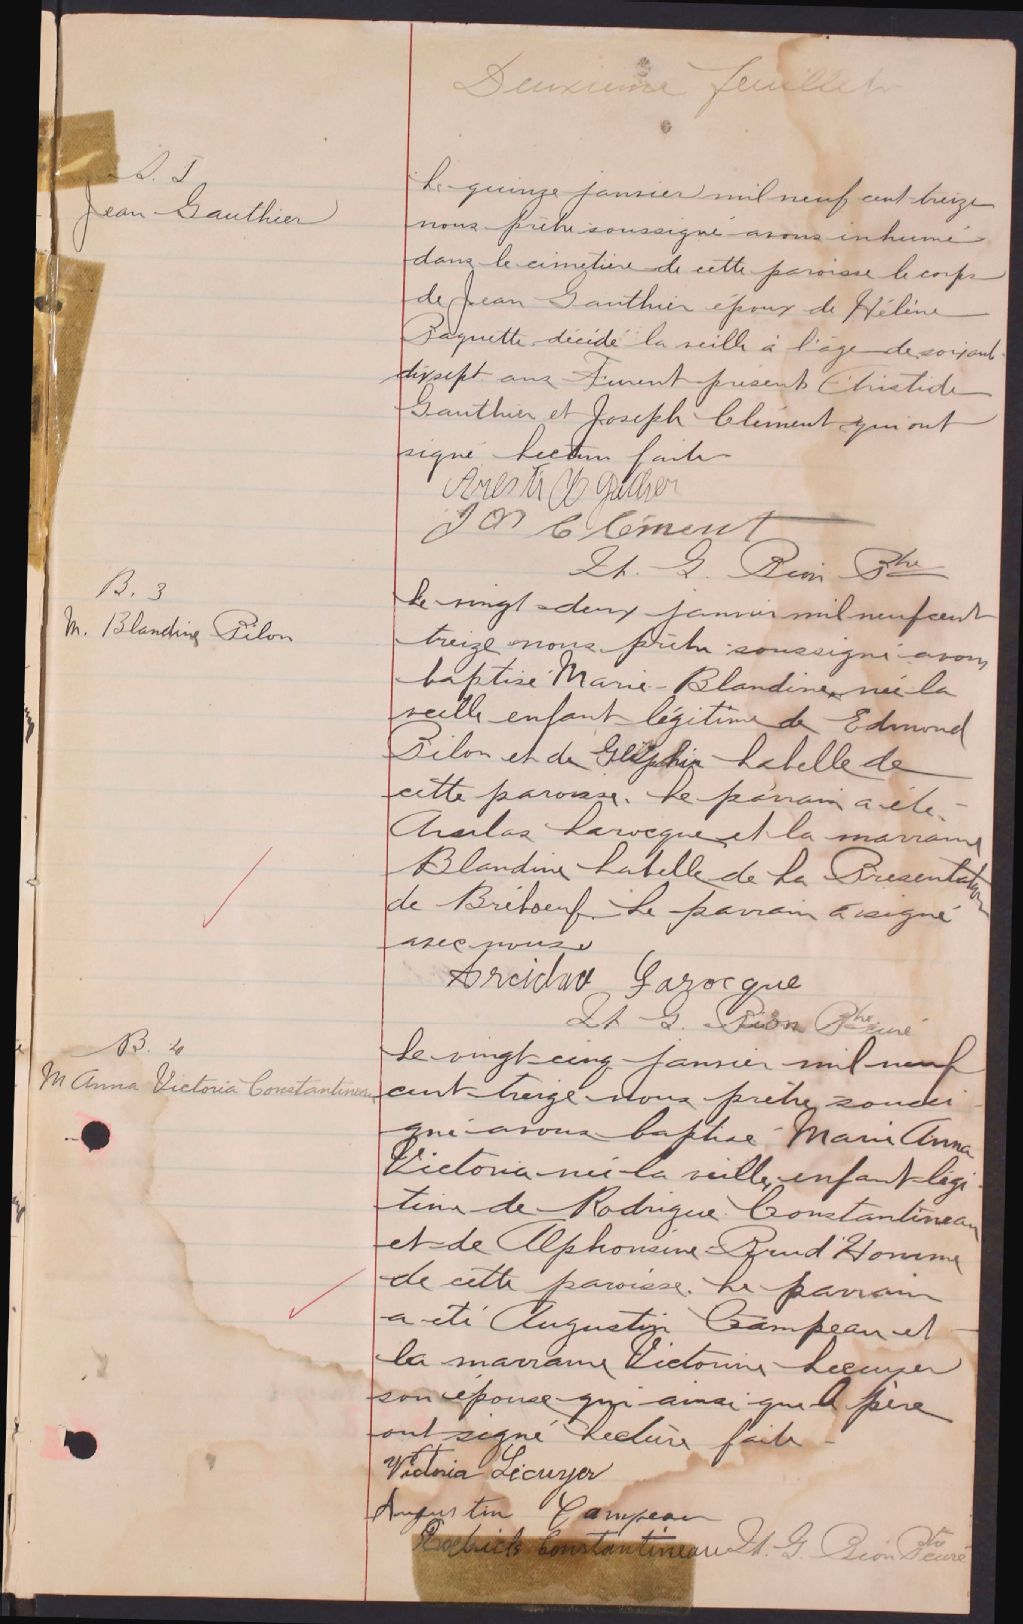 Deuxième feuillet
S. I
Jean Gauthier
Le quinze janvier mil neuf cent treize
nous prêtre soussigné avons inhumé
dans le cimetière de cette paroisse le corps
de Jean Gauthier époux de Hélène
Paquette décédé la veille à l'âge de soixante
dixsept ans Furent présents Aristide
Gauthier et Joseph Clément qui ont
signé Lecture faite
Jos Clément
G. Pion Ptre
B. 3
M. Blandine Pilon
Le vingt-deux janvier mil neuf cent
treize nous prêtre soussigné avons
baptisé Marie-Blandine née la
veille enfant légitime de Edmond
Pilon et de Labelle de
cette paroisse. Le parrain a été
Larocque et la marraine
Blandine Labelle de La Présentation
de Bréboeuf. Le parrain a signé
avec nous
Larocque
G. Pion Ptre curé
B. 4
M Anna Victoria Constantineau
Le vingt-cinq janvier mil neuf
cent-treize nous prêtre soussi
gné avons baptisé Marie Anna
Victoria née la veille, enfant légi
time de Rodrigue Constantineau
et de Alphonsine Prud'Homme
de cette paroisse. Le parrain
a été Augustin Campeau et
la marraine Victorine Lecuyer
son épouse qui ainsi que le père
ont signé Lecture faite -
Victoria Lécuyer
Augustin Campeau
Rodrick Constantineau G. Pion Ptre curé